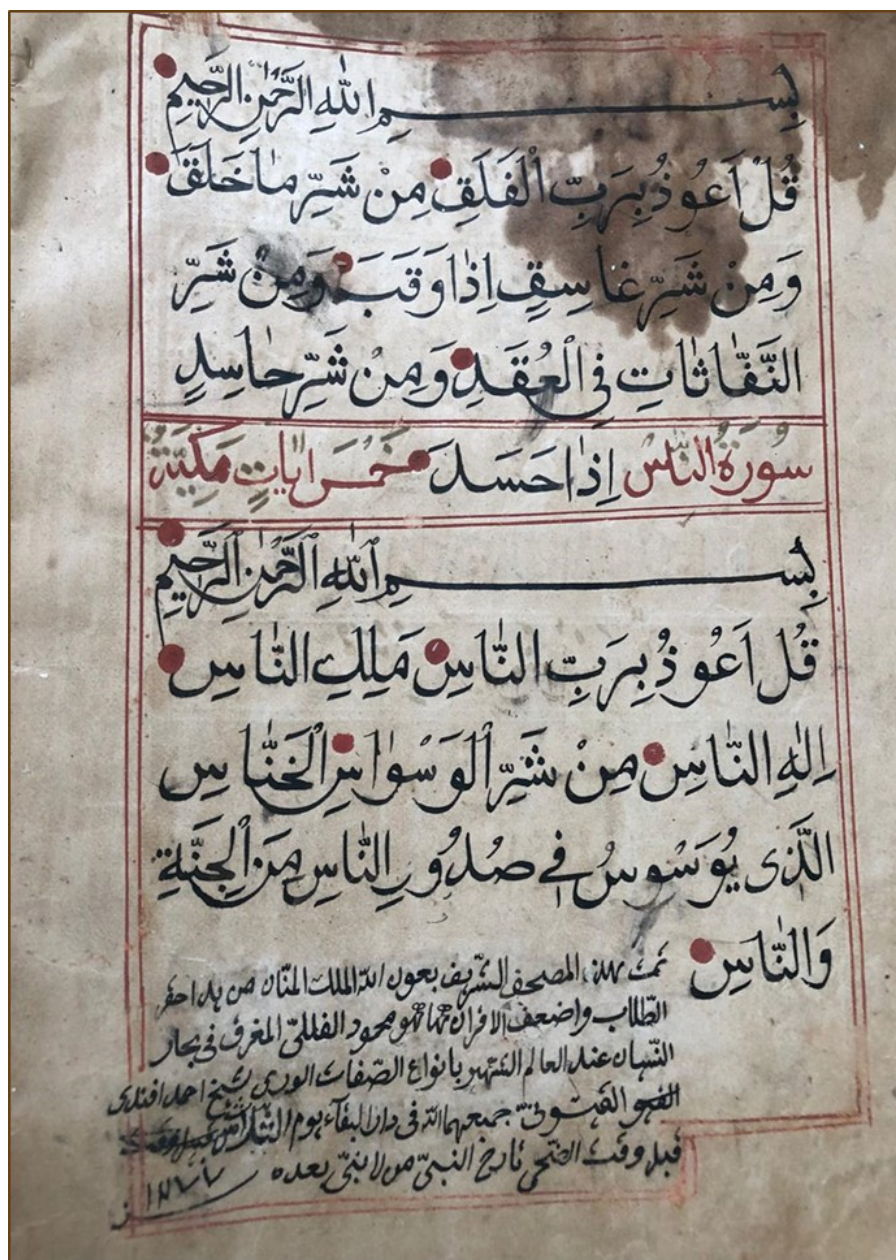 بِسْمِ اللّٰهِ الرَّحْمٰنِ الرَّحِيمِ
قُلْ اَعُوذُ بِرَبِّ الْفَلَقِ مِنْ شَرِّ مَا خَلَقَ
وَمِنْ شَرِّ غَاسِقٍ اِذَا وَقَبَ وَمِنْ شَرِّ
النَّفَّاثَاتِ فِي الْعُقَدِ وَمِنْ شَرِّ حَاسِدٍ
سُورَةُ النَّاسِ اِذَا حَسَدَ خَمْسَ اٰيَاتٍ مَكِّيَّةٌ
بِسْمِ اللّٰهِ الرَّحْمٰنِ الرَّحِيمِ
قُلْ اَعُوذُ بِرَبِّ النَّاسِ مَلِكِ النَّاسِ
اِلٰهِ النَّاسِ مِنْ شَرِّ الْوَسْوَاسِ الْخَنَّاسِ
الَّذِى يُوَسْوِسُ فِى صُدُورِ النَّاسِ مِنَ الْجِنَّةِ
وَالنَّاسِ
تمت هذه المصحف الشريف بعون الله الملك المنان من يد احقر
الطلاب واضعف الاقران محمود المغرق فى بحار
النسيان عند العالم الشهير بانواع الصفات شيخ احمد افندى
جمعهما الله فى دار البقاء يوم
قبل وقت الضحى تاريخ النبى من لا نبى بعده